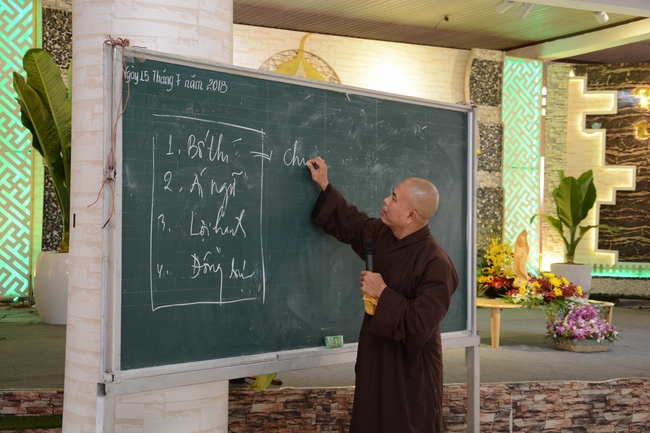 Ngày 15 Tháng 7 năm 2018
1. Bố thí ⇒ chu
2. Ái ngữ
3. Lợi hành
4. Đồng sự